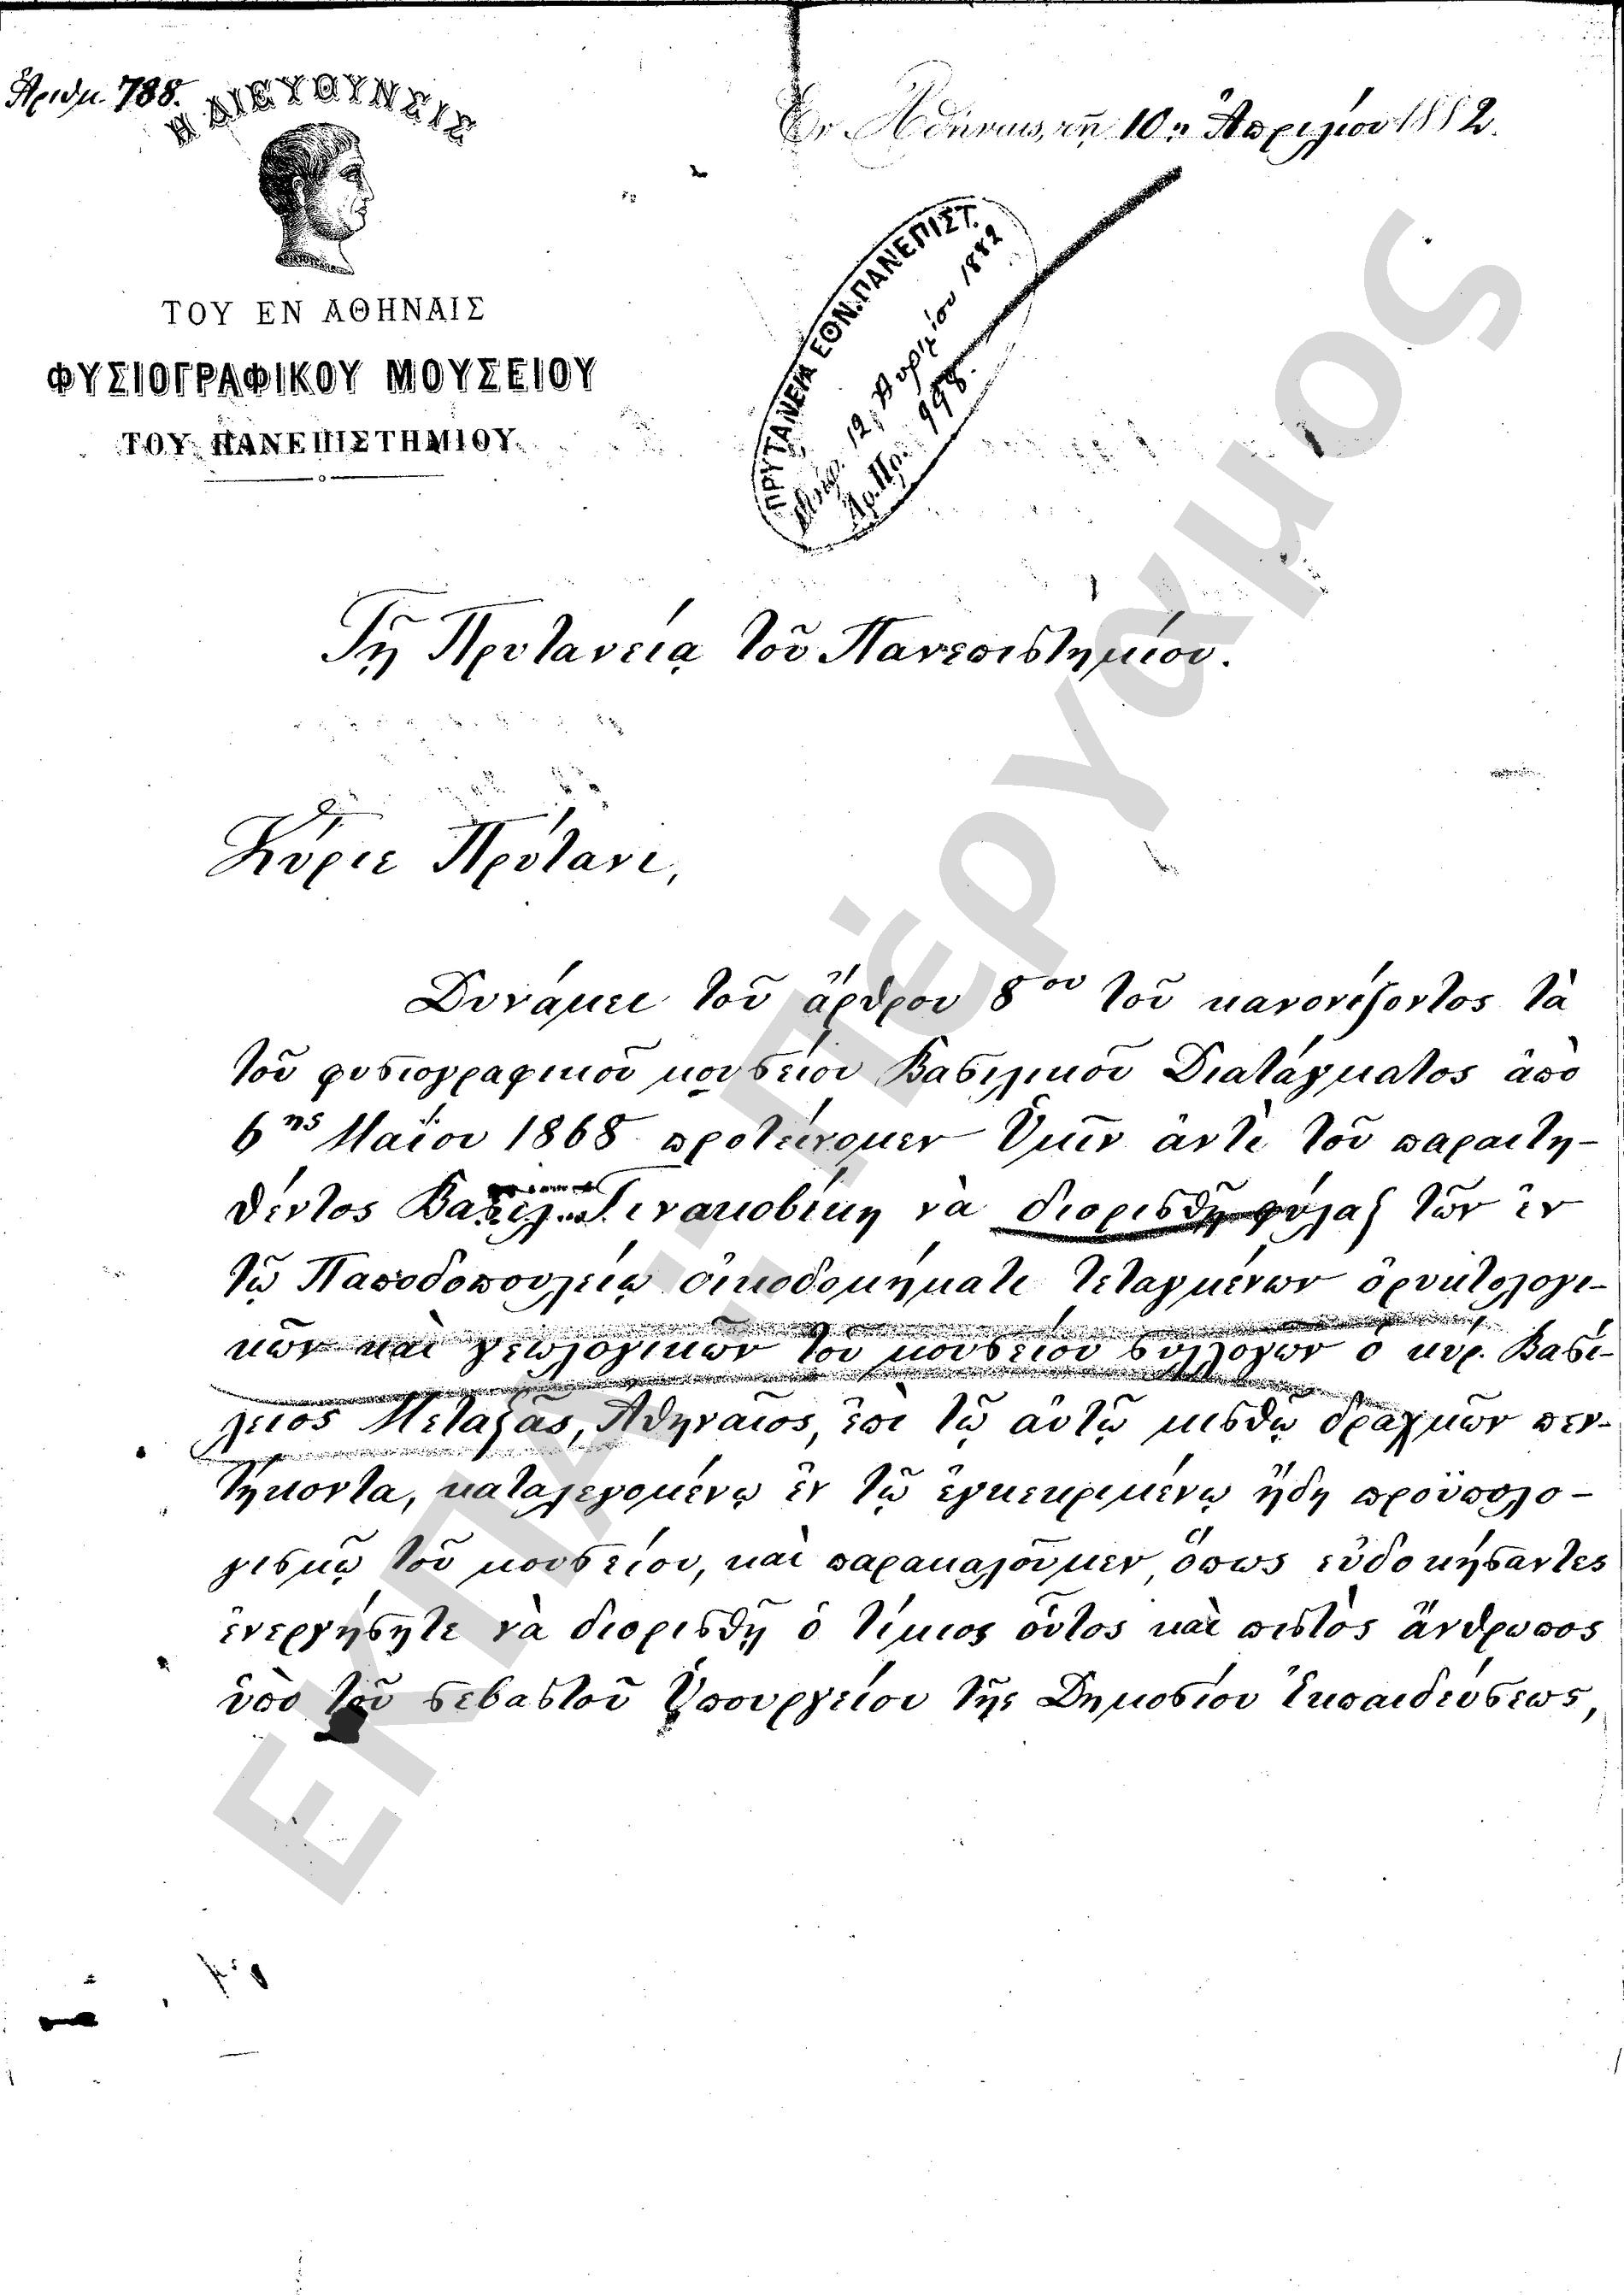 Ἀριθμ. 788.
Η ΔΙΕΥΘΥΝΣΙΣ
ΤΟΥ ΕΝ ΑΘΗΝΑΙΣ
ΦΥΣΙΟΓΡΑΦΙΚΟΥ ΜΟΥΣΕΙΟΥ
ΤΟΥ ΠΑΝΕΠΙΣΤΗΜΙΟΥ
Ἐν Ἀθήναις, τῇ 10ῃ Ἀπριλίου 1882.
ΠΡΥΤΑΝΕΙΑ ΕΘΝ. ΠΑΝΕΠΙΣΤ.
12 Ἀπριλίου 1882
Ἀρ. Πρ. 998.
Τῇ Πρυτανείᾳ τοῦ Πανεπιστημίου.
Κύριε Πρύτανι,
Δυνάμει τοῦ ἄρθρου 8ου τοῦ κανονίζοντος τὰ
τοῦ φυσιογραφικοῦ μουσείου Βασιλικοῦ Διατάγματος ἀπὸ
6ης Μαΐου 1868 προτείνομεν Ὑμῖν ἀντὶ τοῦ παραιτη-
θέντος Βασιλ. Γινακοβίκη νὰ διορισθῇ φύλαξ τῶν ἐν
τῷ Παπαδοπουλείῳ οἰκοδομήματι τεταγμένων ὀρυκτολογι-
κῶν καὶ γεωλογικῶν τοῦ μουσείου συλλογῶν ὁ κύρ. Βασί-
λειος Μεταξᾶς, Ἀθηναῖος, ἐπὶ τῷ αὐτῷ μισθῷ δραχμῶν πεν-
τήκοντα, καταλεγομένῳ ἐν τῷ ἐγκεκριμένῳ ἤδη προϋπολο-
γισμῷ τοῦ μουσείου, καὶ παρακαλοῦμεν, ὅπως εὐδοκήσαντες
ἐνεργήσητε νὰ διορισθῇ ὁ τίμιος οὗτος καὶ πιστὸς ἄνθρωπος
ὑπὸ τοῦ σεβαστοῦ Ὑπουργείου τῆς Δημοσίου Ἐκπαιδεύσεως,
ΕΚΠΑ - Πέργαμος